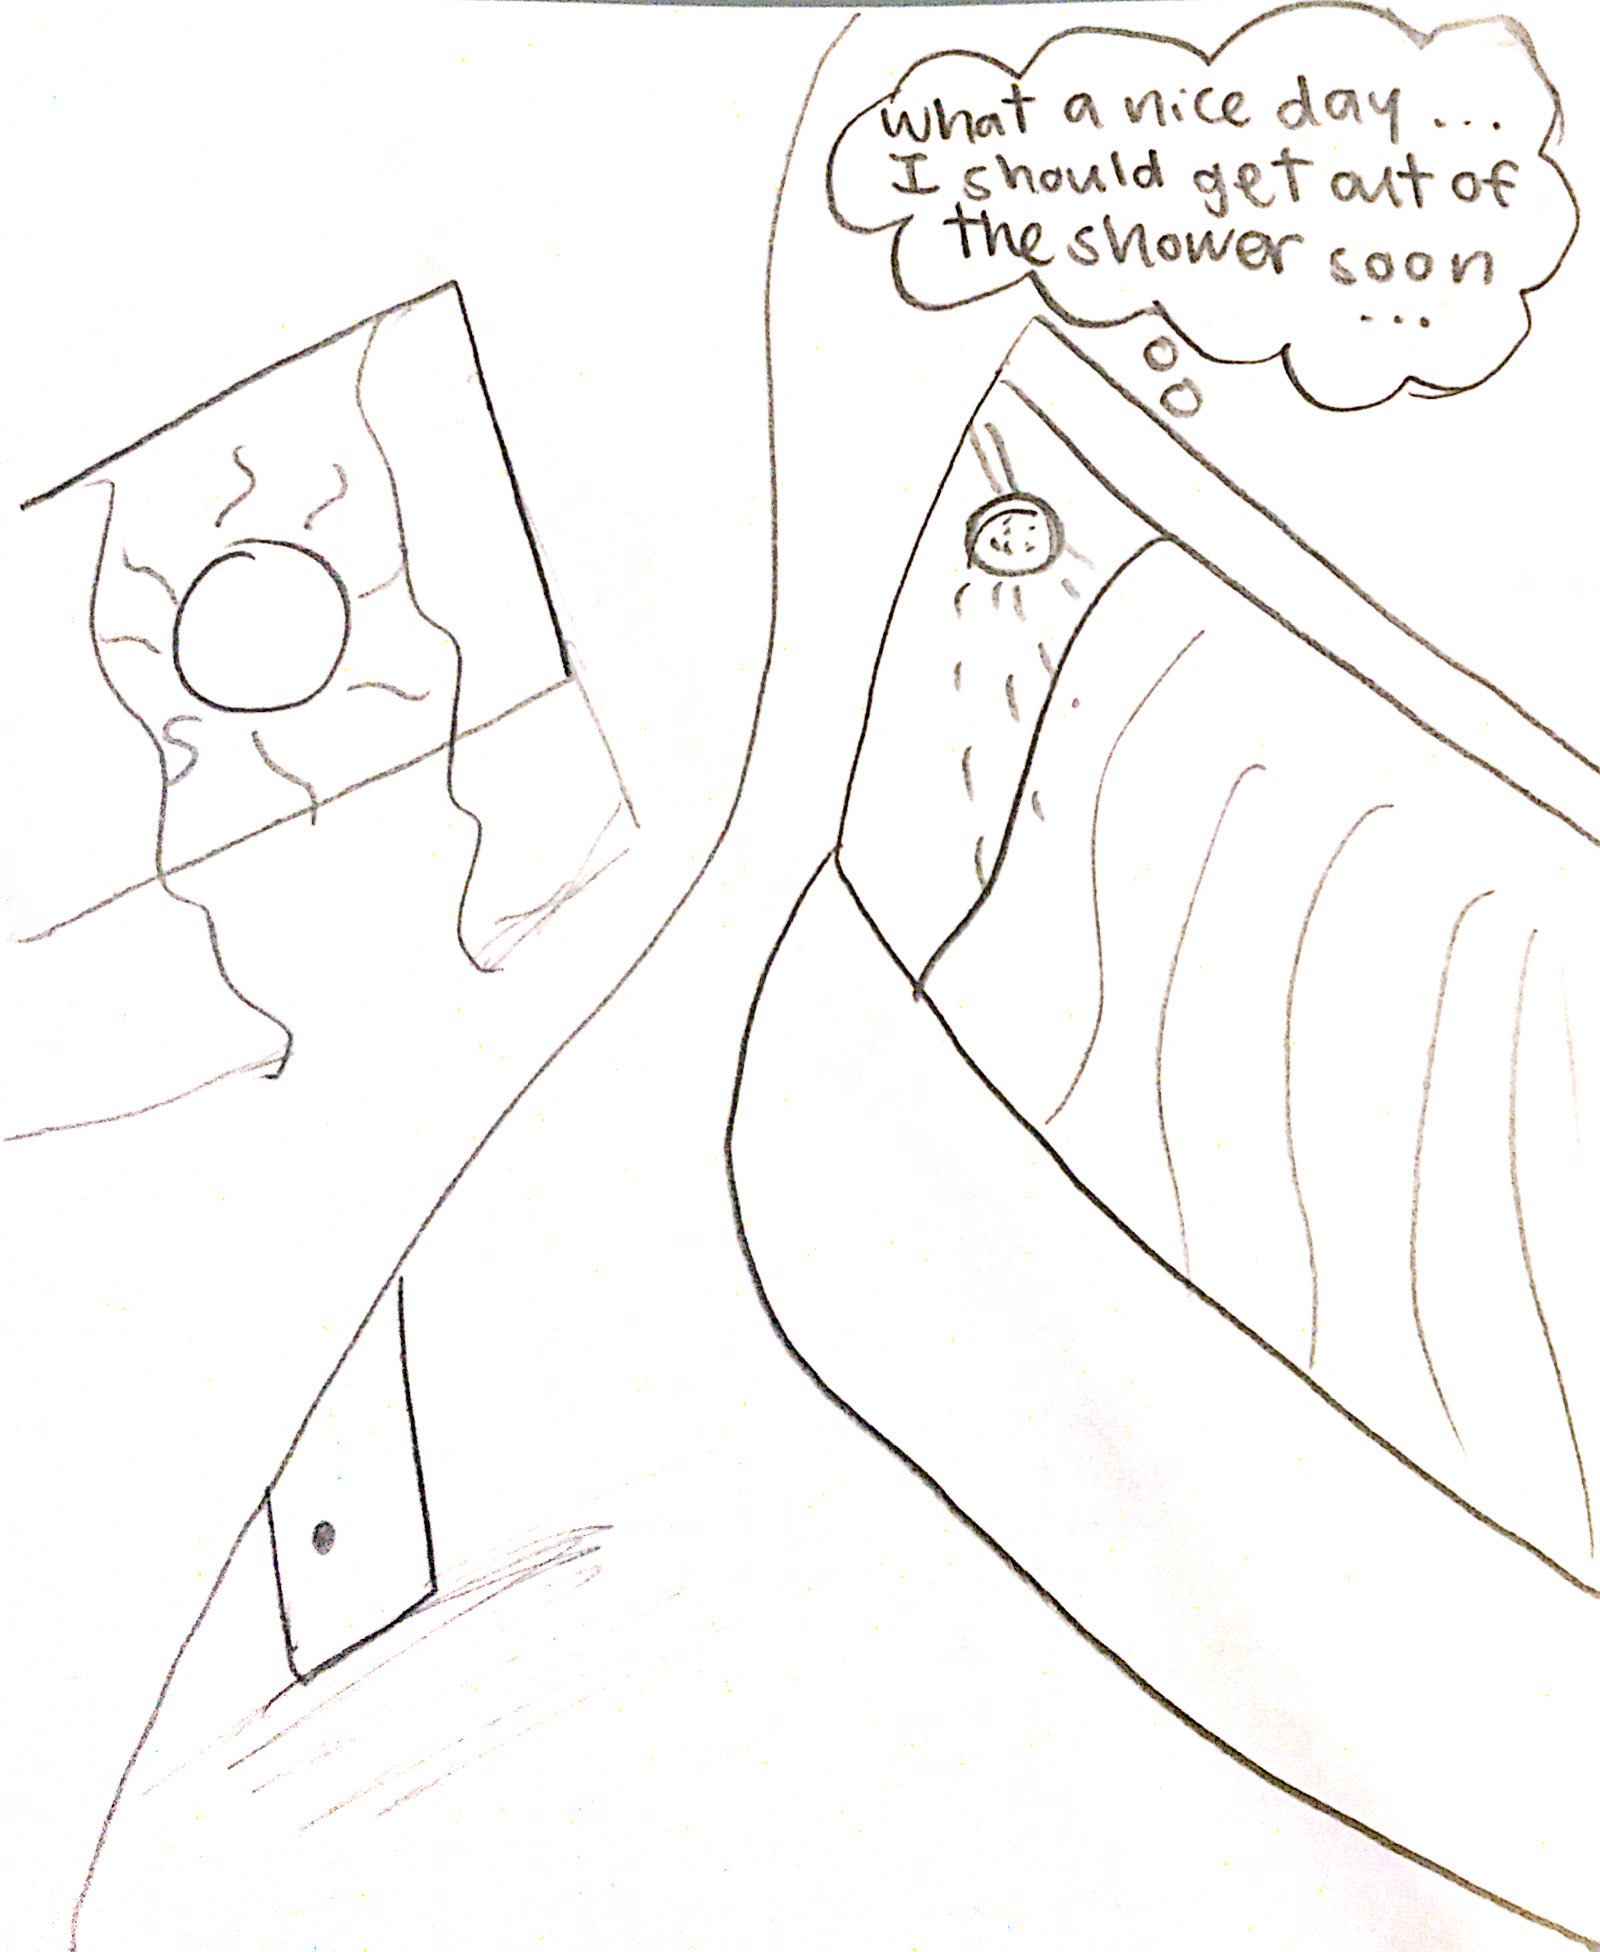 what a nice day ...
I should get out of
the shower soon
...